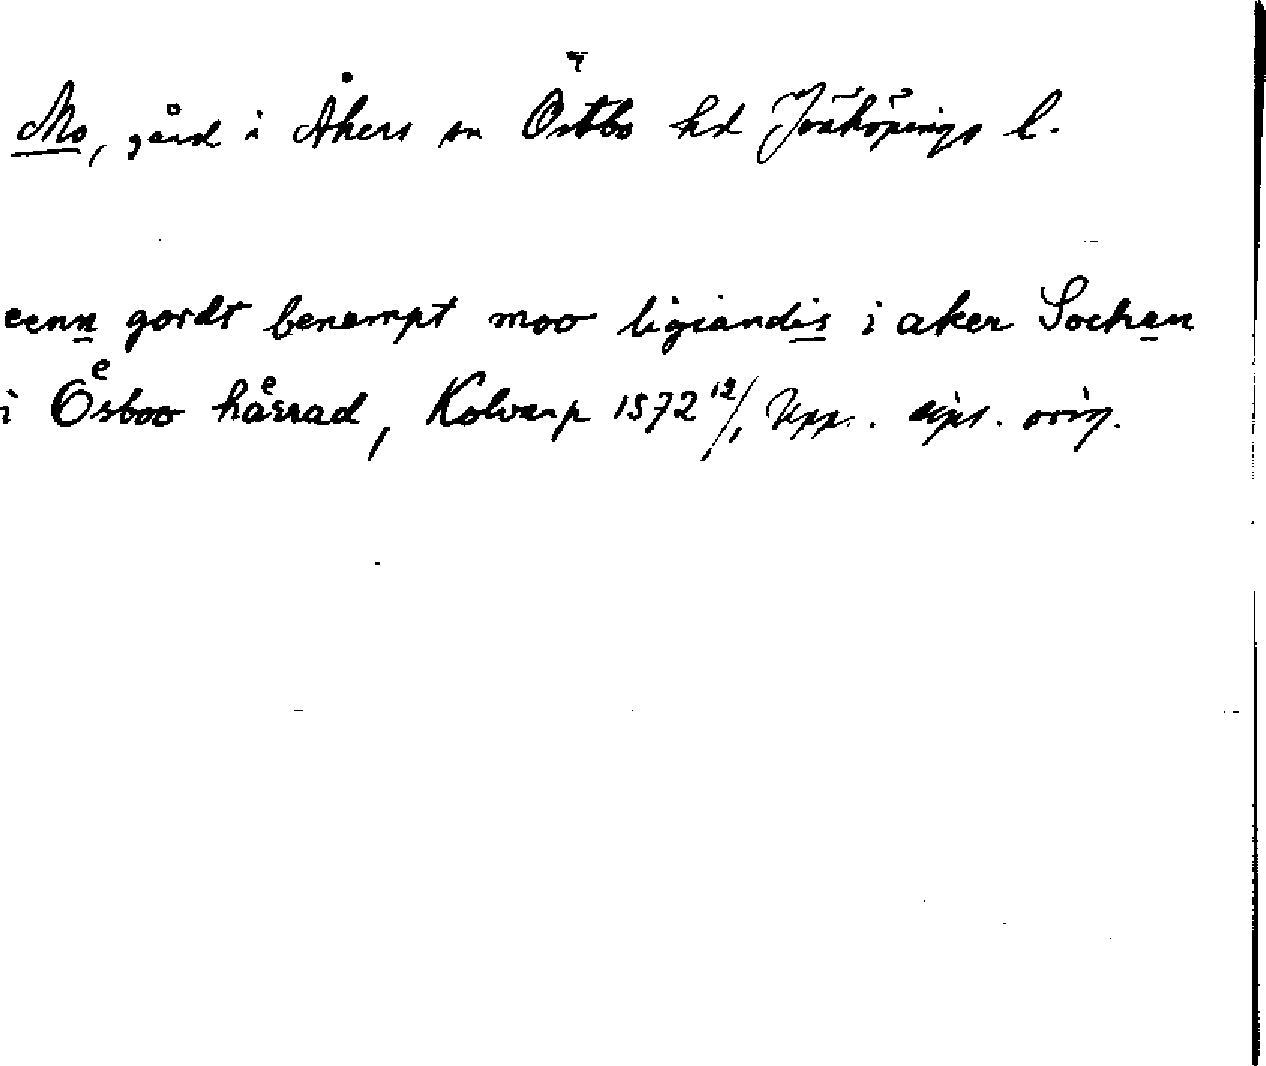 Mo, gård i Åkers sn Östbo hd Jönköpings l.
eenn gordt benempt moo ligiandis i aker Sochen
i Oͤsboo haͤrrad, Kolvarp 1572 12/1, Upp. orig.